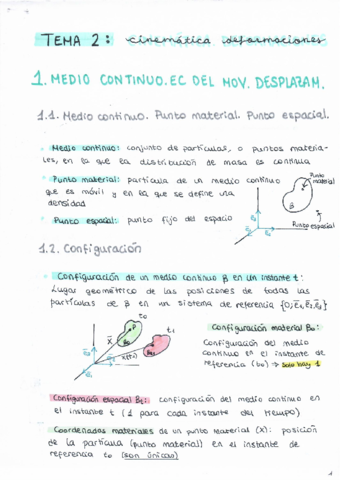 TEMA 2: cinemática deformaciones
1. MEDIO CONTINUO. EC DEL MOV. DESPLAZAM.
1.1. Medio continuo. Punto material. Punto espacial.
Medio continuo: conjunto de partículas, o puntos materia-
les, en la que la distribución de masa es continua
Punto material: partícula de un medio continuo
que es móvil y en la que se define una
densidad
Punto espacial: punto fijo del espacio
Punto
material
Punto espacial
1.2. Configuración
Configuración de un medio continuo B en un instante t:
Lugar geométrico de las posiciones de todas las
partículas de B en un sistema de referencia {0; e̅₁ e̅₂ e̅₃}
t₀
t₁
P
X̅
Configuración material B₀:
Configuración del medio
continuo en el instante de
referencia (t₀) → Solo hay 1
Configuración espacial Bₜ: configuración del medio continuo en
el instante t (1 para cada instante del tiempo)
Coordenadas materiales de un punto material (X): posición
de la partícula (punto material) en el instante de
referencia t₀ (son únicas)